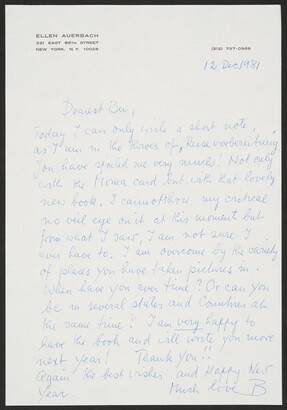 ELLEN AUERBACH
221 EAST 85TH STREET
NEW YORK, N.Y. 10028
(212) 737-0986
12 Dec 1981
Dearest Bu,
Today I can only write a short note,
as I am in the throes of, Reisevorbereitung
You have spoiled me very much! Not only
with the Moma card but with that lovely
new book. I cannot throw my critical
no evil eye on it at this moment but
from what I saw, I am not sure I
ever have to. I am overcome by the variety
of places you have taken pictures in.
When have you ever time? Or can you
be in several states and Countries at
the same time? I am very happy to
have the book and will write you more
next year! Thank you!!
Again the best wishes and Happy New
Year. Much love B